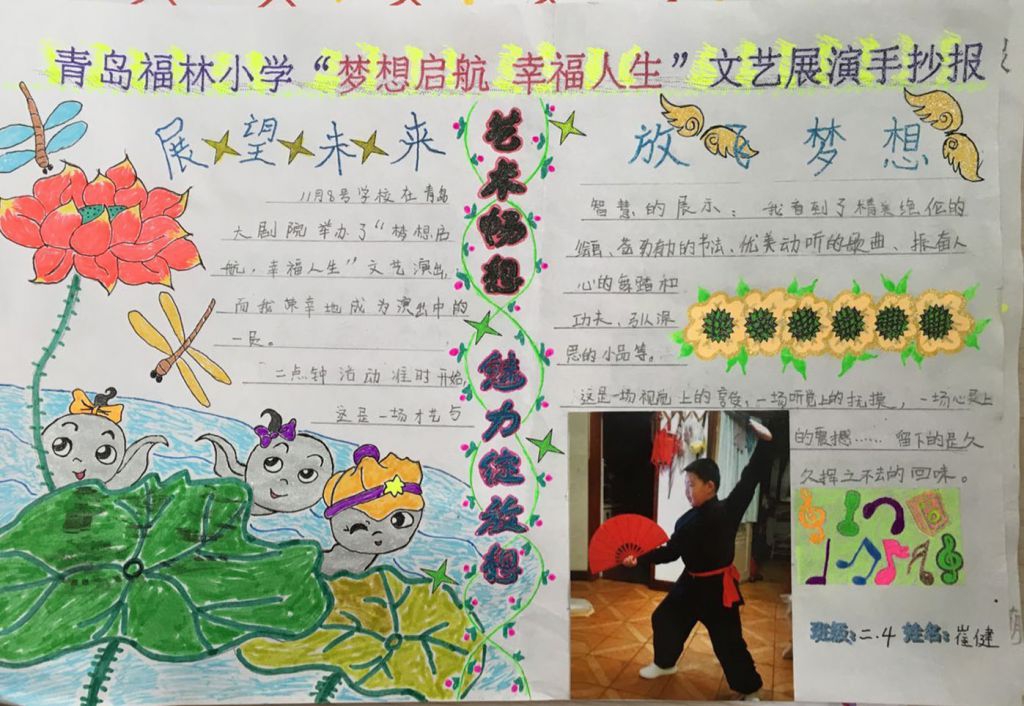 青岛福林小学“梦想启航 幸福人生”文艺展演手抄报
展望未来
11月8号学校在青岛
大剧院举办了“梦想启
航，幸福人生”文艺演出，
而我荣幸地成为演出中的
一员。
二点钟活动准时开始，
这是一场才艺与
艺术畅想
魅力绽放
放飞梦想
智慧的展示：我看到了精美绝伦的
绘画、苍劲有力的书法、优美动听的歌曲、振奋人
心的舞蹈和
功夫、引人深
思的小品等。
这是一场视觉上的享受，一场听觉上的抚摸，一场心灵上
的震撼……留下的是久
久挥之不去的回味。
班级：二.4 姓名：崔健